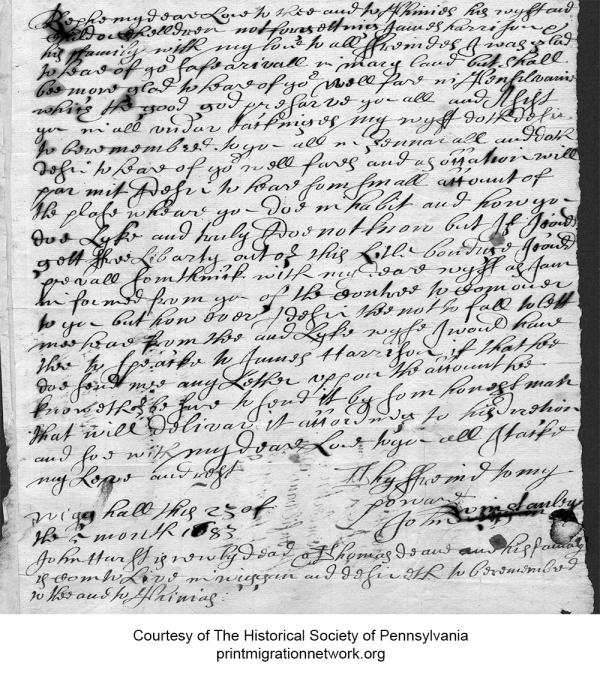 my deare Love to thee and to Phinies his wyff and
Childoe Chelldren not forgetting James harrison &
his ffamily with my love to all ffreindes I was glad
to heare of yo safe arivall in mary land but shall
bee more glad to heare of yo well fare in Pensilvania
which the good god preserve yo all and
yo in all undar my wyff doth desir
to be remembred to yo all in Jennarall and doth
desir to heare of yo well fare and as will
par mit I desir to heare som small attount of
the plase wheare yo doe in habit and how yo
doe Lyke and truly I doe not know but if I could
gett ffree Libarty out of this Littl bondige I could
prevall somthink with my deare wyff as I am
in formed from yo of the contree to com over
to yo but how ever I desir thee not to fall to lett
mee hear from thee and Lyke wyse I would have
thee to speake to James Harrison if that hee
doe send mee any Letter uppon the attount hee
knoweth bee sure to send it by som honest man
that will delivar it attording to his
and soe with my deare Love to yo all I take
my Leve and rest
Thy ffreind to my
powar
John Winstanley
hall this 23 of
the month 1683
John Hurst is newly dead Thomas deane and his family
is com to Live in wiggan and desireth to be remembred
to thee and to Phinias:
Courtesy of The Historical Society of Pennsylvania
printmigrationnetwork.org